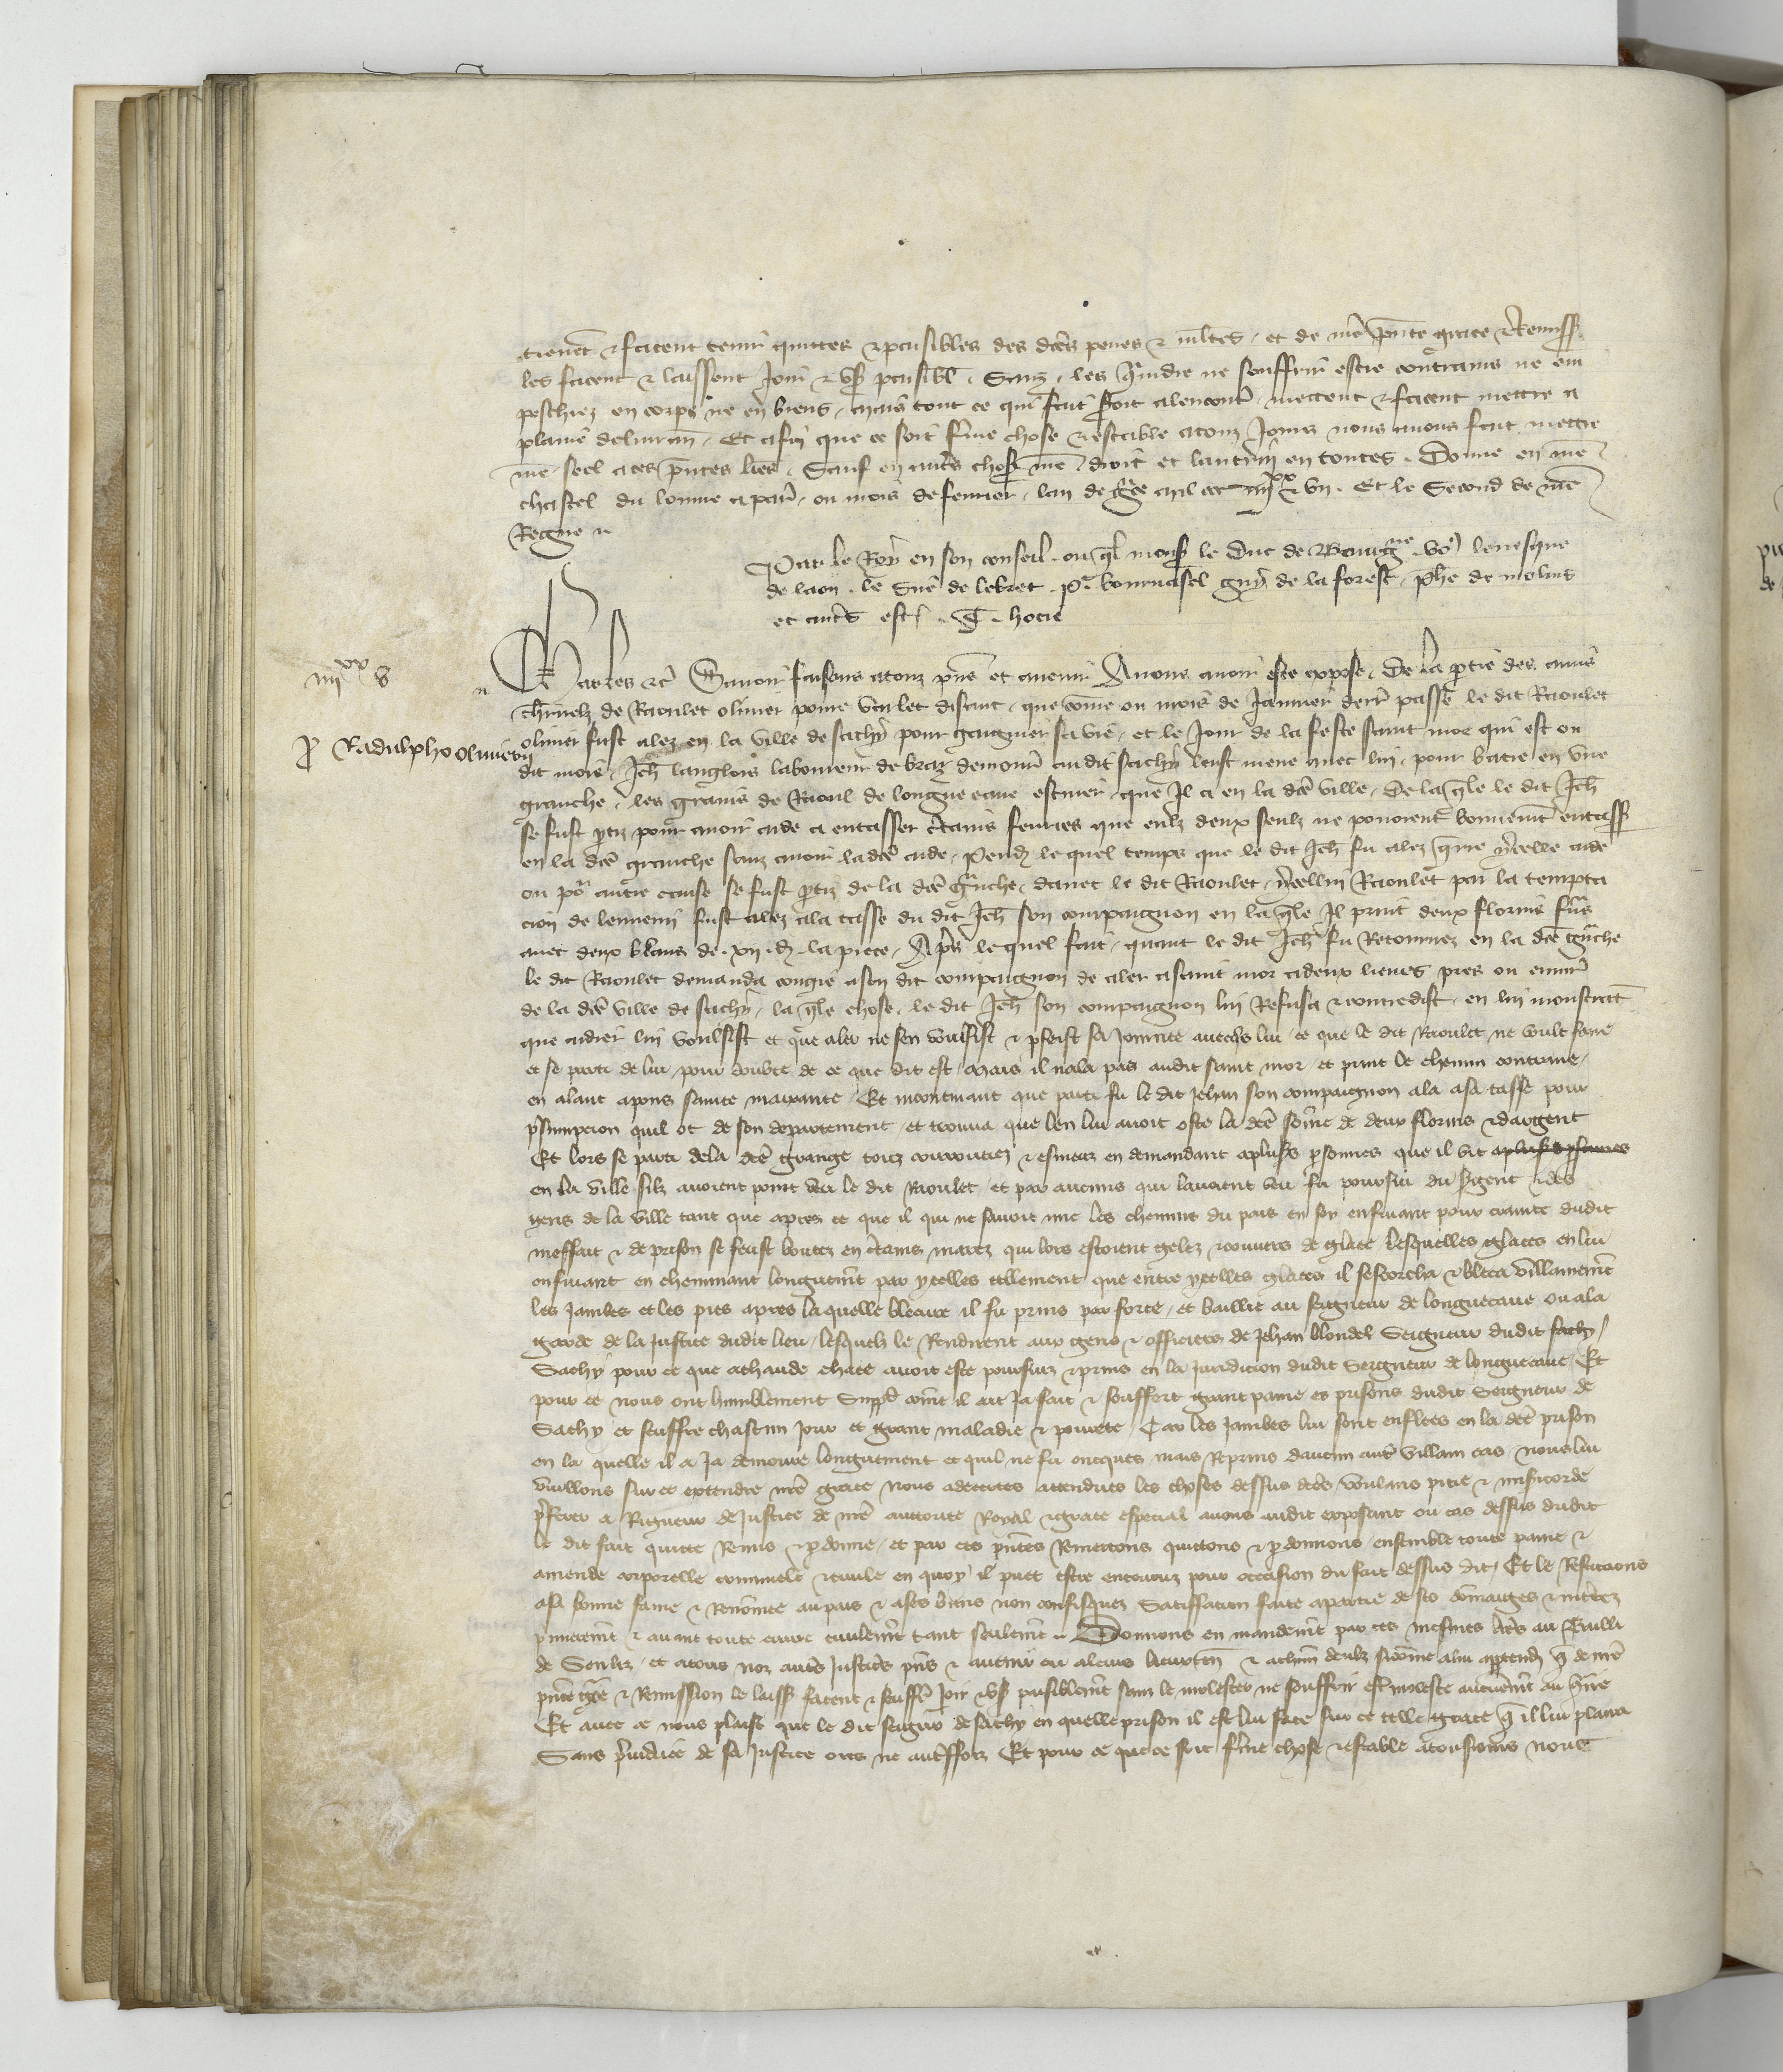 tienent et facent tenir quittes et paisibles des dces penes et mltes, et de nre pnte grace et Remiss
les facent et laissent Joir et vser paisibl. Sanz les contraindre ne souffrir estre contrains ne em
peschiez en corps ne en biens, mais tout ce qui fait soit alencontre mettent et facent mettre a
plaine deliuran. Et afin que ce soit ferme chose et estable atouz Jours nous auons fait mettre
nre seel aces pntes lres. Sauf en autres choses nre droit et lautrui en toutes. Donne en nre
chastel du louure a paris, ou mois de feurier, lan de gce mil ccc iiijxx et vn. Et le Second de nre
Regne
Par le Roy en son conseil ou quel mons le Duc de Bourgne vo leuesque
de laon le sire de lebret P bournasel guy de la forest, phe de molins
et autres est. G. hocie
iiijxx v
Charles etc Sauoir faisons atouz pns et auenir Anous auoir este expose, De la partie des amis
charnelz de Raoulet oliuier poure varlet disant, que comme ou mois de Januier derr passe le dit Raoulet
P Radulpho oliuerii
oliuier fust alez en la ville de sachy pour gaignier sa vie, et le Jour de la feste saint mor qui est ou
dit mois, Jeh langlois laboureur de braz demourant audit sachy leust mene auec lui, pour batre en vne
granche, les grains de Raoul de longue eaue escuier que Il a en la dce ville, De la quele le dit Jeh
se fust partiz pour auoir aide a entasser certains feurres que eulz deux seulz ne pouoient bonnement entasser
en la dce granche sanz auoir la dce aide, Pendt le quel temps que le dit Jeh fu alez querre ycelle aide
ou por autre cause se fust partiz de la dce granche, dauec le dit Raoulet, ycellui Raoulet par la tempta
cion de lennemi fust alez ala tasse du dit Jeh son compaignon en la quele Il print deux florins frans
auec deux blans de xij d la piece, Apres lequel fait, quant le dit Jeh fu Retournez en la dce granche
le dit Raoulet demanda congie asen dit compaignon de aler asaint mor adeux lieues pres ou enuiron
de la dce ville de sachy, la quele chose le dit Jeh son compaignon lui Refusa et contredist, en lui monstrant
que aidier lui voulsist et que aler ne sen voulsist et parfeist sa Journee auecques lui, ce que le dit Raoulet ne voult faire
et se parti de lui, pour doubte de ce que dit est, Mais il nala pas audit saint mor, et print le chemin contraire,
en alant apons sainte maixante, Et incontinant que parti fu le dit Jehan son compaignon ala asa tasse pour
presumpcion quil ot de son departement, et trouua que len lui auoit oste la dce somme de deux florins et dargent
Et lors se parti dela dce grange touz courouciez et esmeuz en demandant apluseurs personnes que il vit apluseurs personnes
en la ville silz auoient point veu le dit Raoulet, et par aucuns qui lauoient veu fu poursui du sergent et des
gens de la ville tant que apres ce que il qui ne sauoit mie les chemins du pais en soy enfuiant pour crainte dudit
meffait et de prison se feust boutez en certains marez qui lors estoient gelez et couuers de glace Lesquelles glaces en lui
enfuiant en cheminant longuement par ycelles tellement que entre ycelles glaces il sescorcha et bleca villainement
les Jambes et les pies apres laquelle bleceure il fu prins par force, et baillie au seigneur de longueeaue ou ala
garde de la Justice dudit lieu, lesquelz le Rendirent aux gens et officiers de Jehan blondel Seigneur dudit sachy
Sachy pour ce que achaude chace auoit este poursuiz et prins en la Juridicion dudit Seigneur de longueeaue, Et
pour ce nous ont humblement Supplie comme il ait Ja fait et souffert grant paine es prisons dudit Seigneur de
Sachy et seuffre chascun Jour et grant maladie et pourete, Car les Jambes lui sont enflees en la dce prison
en la quelle il a Ja demoure longuement et quil ne fu oncques mais Reprins daucun autre villain cas, Nous lui
vueillons sur ce extendre nre grace Nous adecertes attendues les choses dessus dces voulans pitie et misericorde
preferer a Rigueur de Justice de nre auctorite Royal et grace especial auons audit exposant ou cas dessus dudit
le dit fait quitte Remis et pardonne, et par ces pntes Remettons quittons et pardonnons ensemble toute paine et
amende corporelle criminele et ciuile en quoy il puet estre encouruz pour occasion du fait dessus dit, Et le Restituons
asa bonne fame et Renomee au pais et ases biens non confisquez Satisfaction faite apartie de ses domaiges et interez
premierement et auant toute euure ciuilement tant seulement, Donnons en mandement par ces mesmes lres au Bailli
de Senliz, et atous noz autres Justiciers pns et auenir ou aleurs lieuxten et achun deulz sicomme alui appartendra que de nre
pnte gce et Remission le laissent facent et seuffrent Joir et vser paisiblement sanz le molester ne souffrir estre moleste aucunement au contraire
Et auec ce nous plaist que le dit seigneur de sachy en quelle prison il est lui face sur ce telle grace que il lui plaira
Sans preiudice de sa Justice ores ne autresfoiz Et pour ce que ce soit ferme chose et estable atousiours Nous